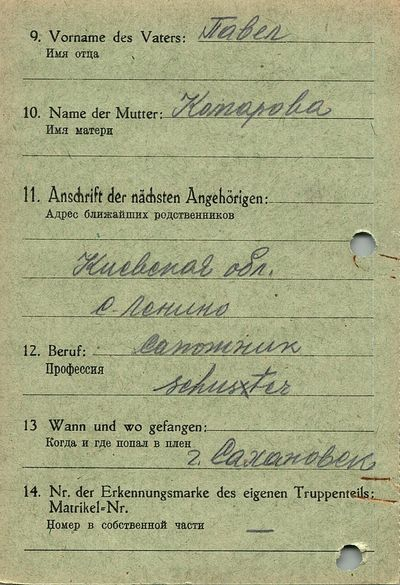 9. Vorname des Vaters: Павел
Имя отца
10. Name der Mutter: Комарова
Имя матери
11. Anschrift der nächsten Angehörigen:
Адрес ближайших родственников
Киевская обл.
с. Ленино
12. Beruf: сапожник
Профессия
schuster
13 Wann und wo gefangen:
Когда и где попал в плен
г. Сахановск
14. Nr. der Erkennungsmarke des eigenen Truppenteils:
Matrikel-Nr.
Номер в собственной части —